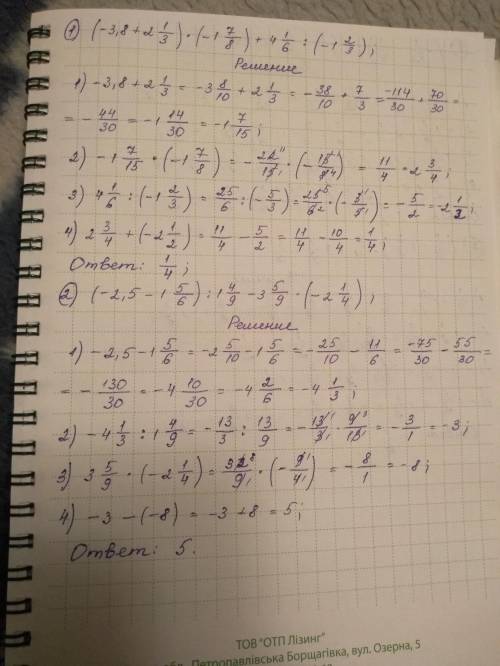 1) (-3,8 + 2 1/3) · (-1 7/8) + 4 1/6 : (-1 2/3);
Решение
1) -3,8 + 2 1/3 = -3 8/10 + 2 1/3 = -38/10 + 7/3 = -114/30 + 70/30 =
= -44/30 = -1 14/30 = -1 7/15;
2) -1 7/15 · (-1 7/8) = -22/15 · (-15/8) = 11/4 = 2 3/4;
3) 4 1/6 : (-1 2/3) = 25/6 : (-5/3) = 25/6 · (-3/5) = -5/2 = -2 1/2;
4) 2 3/4 + (-2 1/2) = 11/4 - 5/2 = 11/4 - 10/4 = 1/4;
Ответ: 1/4;
2) (-2,5 - 1 5/6) : 1 4/9 - 3 5/9 · (-2 1/4);
Решение
1) -2,5 - 1 5/6 = -2 5/10 - 1 5/6 = -25/10 - 11/6 = -75/30 - 55/30 =
= -130/30 = -4 10/30 = -4 2/6 = -4 1/3;
2) -4 1/3 : 1 4/9 = -13/3 : 13/9 = -13/3 · 9/13 = -3/1 = -3;
3) 3 5/9 · (-2 1/4) = 32/9 · (-9/4) = -8/1 = -8;
4) -3 - (-8) = -3 + 8 = 5;
Ответ: 5.
ТОВ "ОТП Лізинг"
Петропавлівська Борщагівка, вул. Озерна, 5